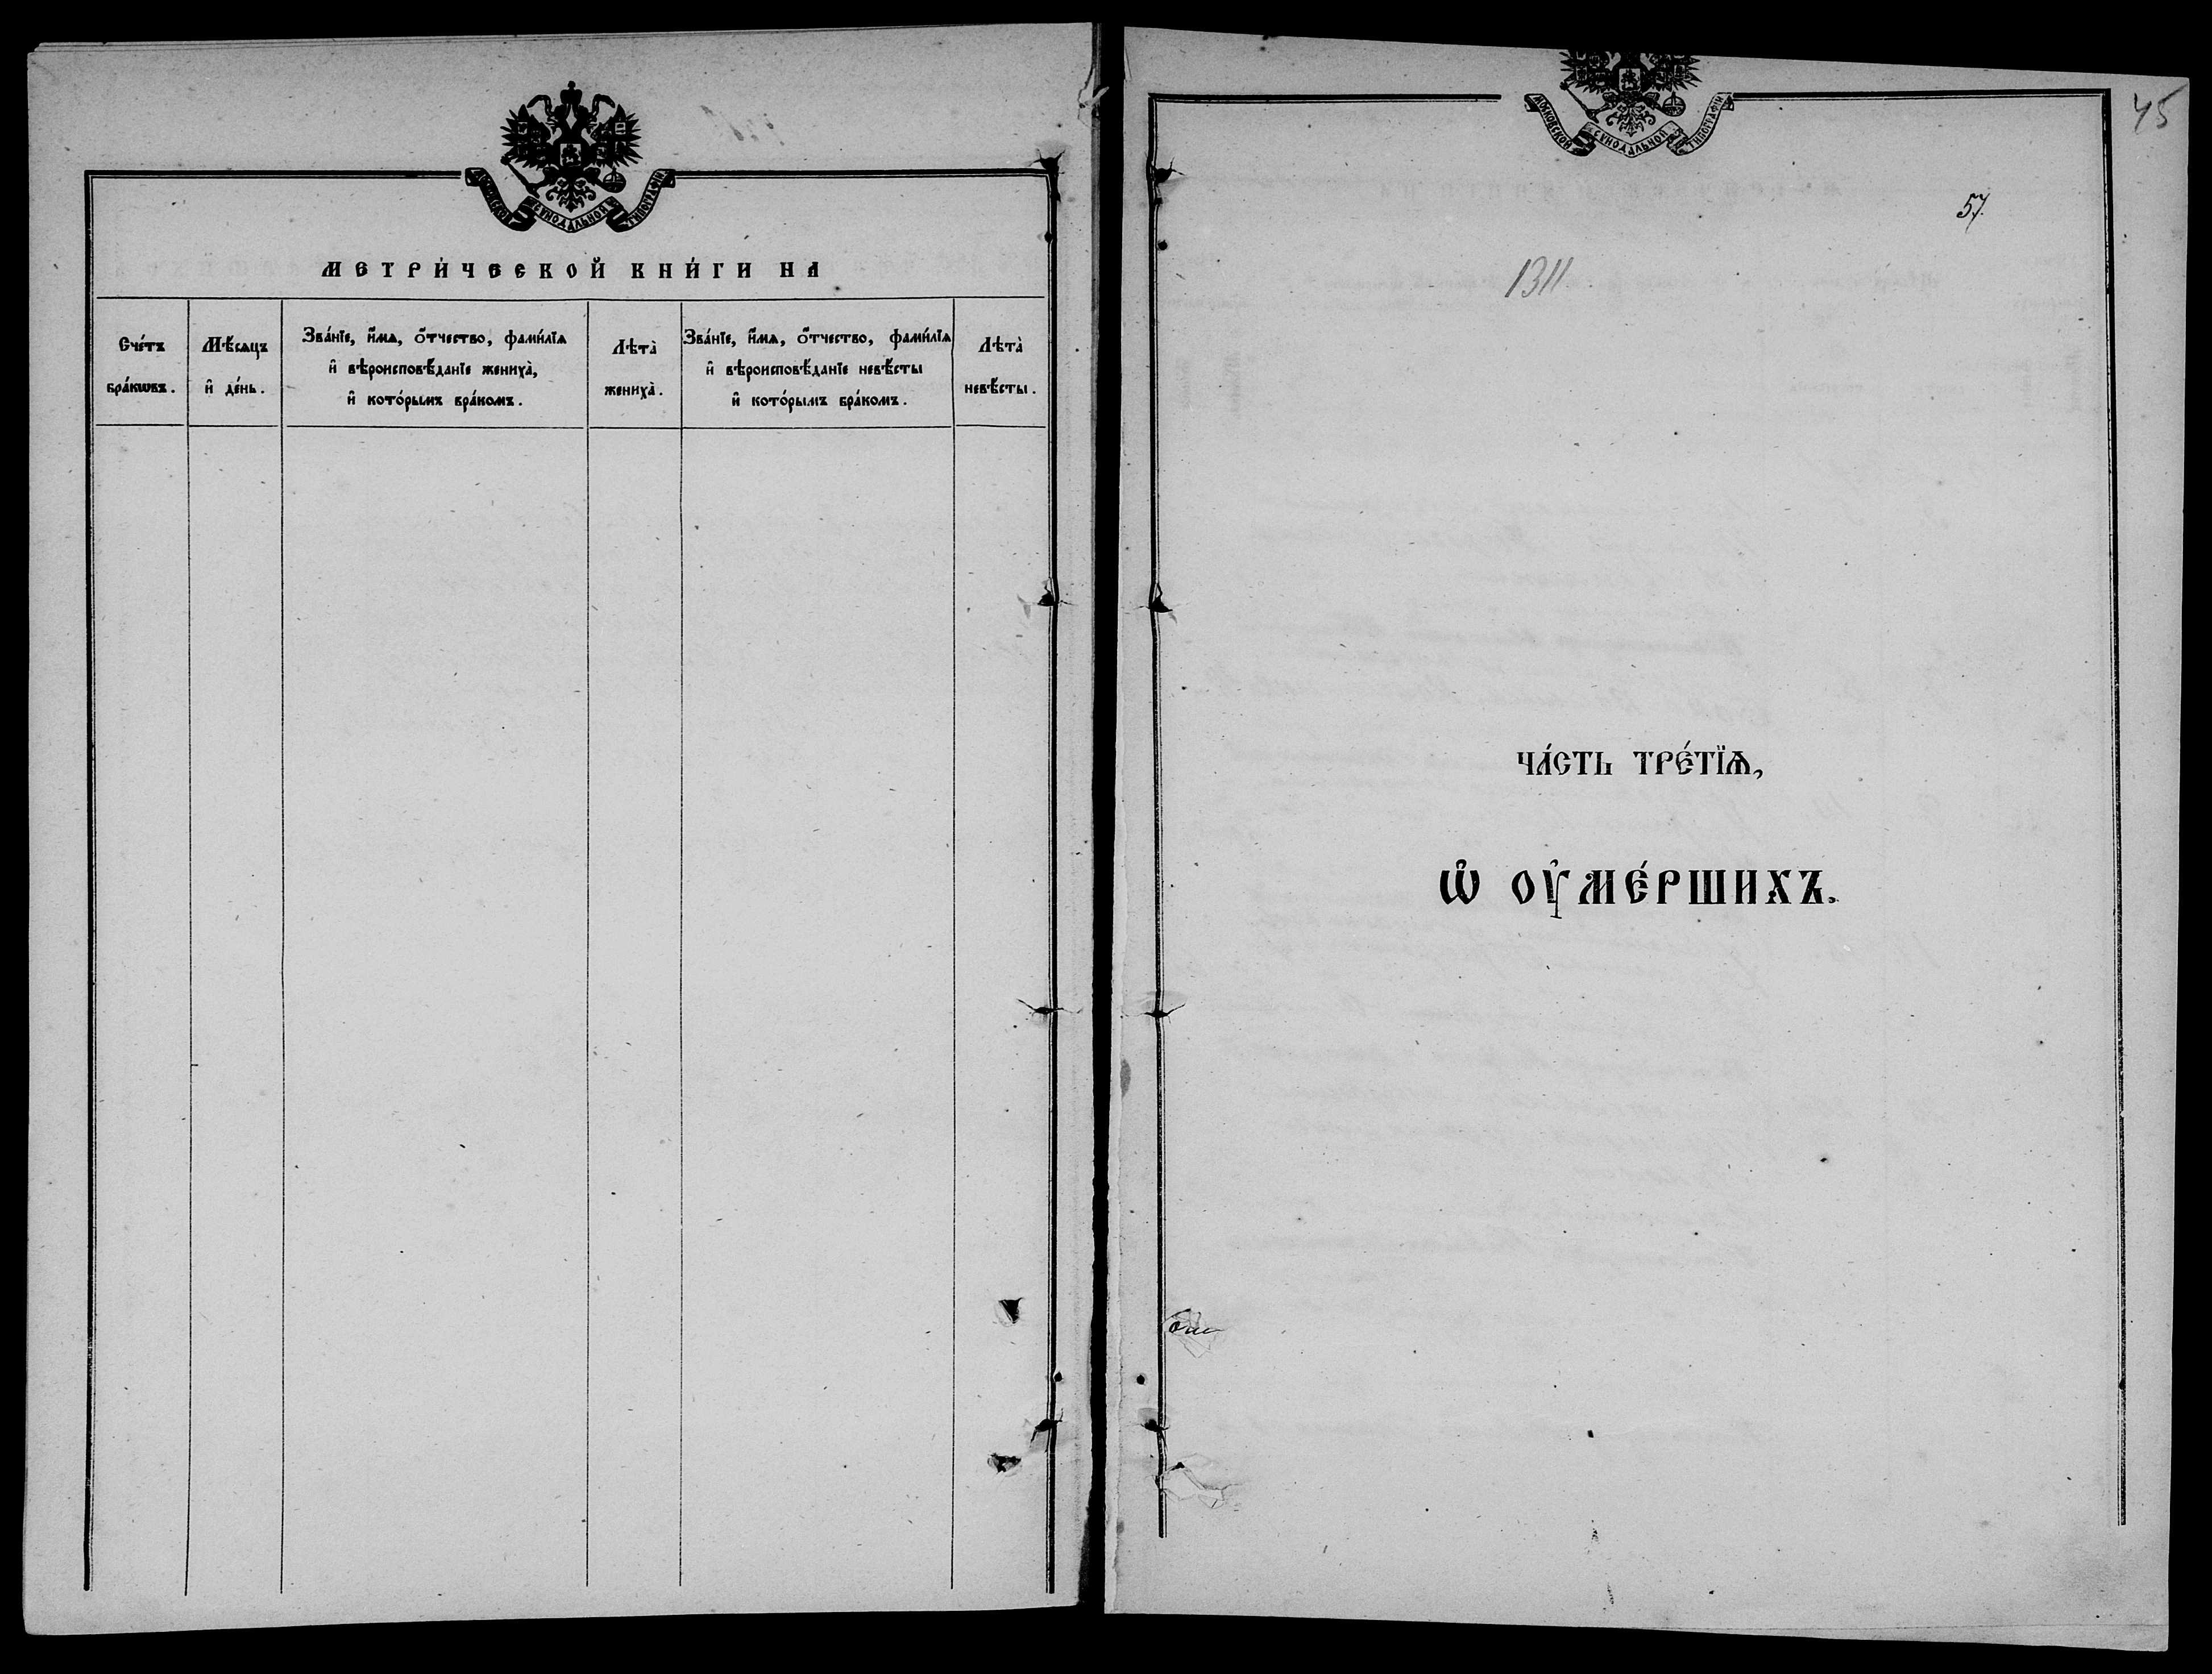 МОСКОВСКОЙ СѴНОДАЛЬНОЙ ТИПОГРАФІИ
МЕТРИ́ЧЕСКОЙ КНИ́ГИ НА
Сче́тъ
бра́кѡвъ.
Мѣ́сяцъ
и҆ де́нь.
Зва́нїе, и҆́мѧ, ѻ҆́тчество, фами́лїѧ
и҆ вѣроисповѣ́данїе жениха̀,
и҆ кото́рымъ бра́комъ.
Лѣта̀
жениха̀.
Зва́нїе, и҆́мѧ, ѻ҆́тчество, фами́лїѧ
и҆ вѣроисповѣ́данїе невѣ́сты
и҆ кото́рымъ бра́комъ.
Лѣта̀
невѣ́сты.
МОСКОВСКОЙ СѴНОДАЛЬНОЙ ТИПОГРАФІИ
45
57.
1311
ЧА́СТЬ ТРЕ́ТЇѦ,
Ѽ ОУ҆МЕ́РШИХЪ.